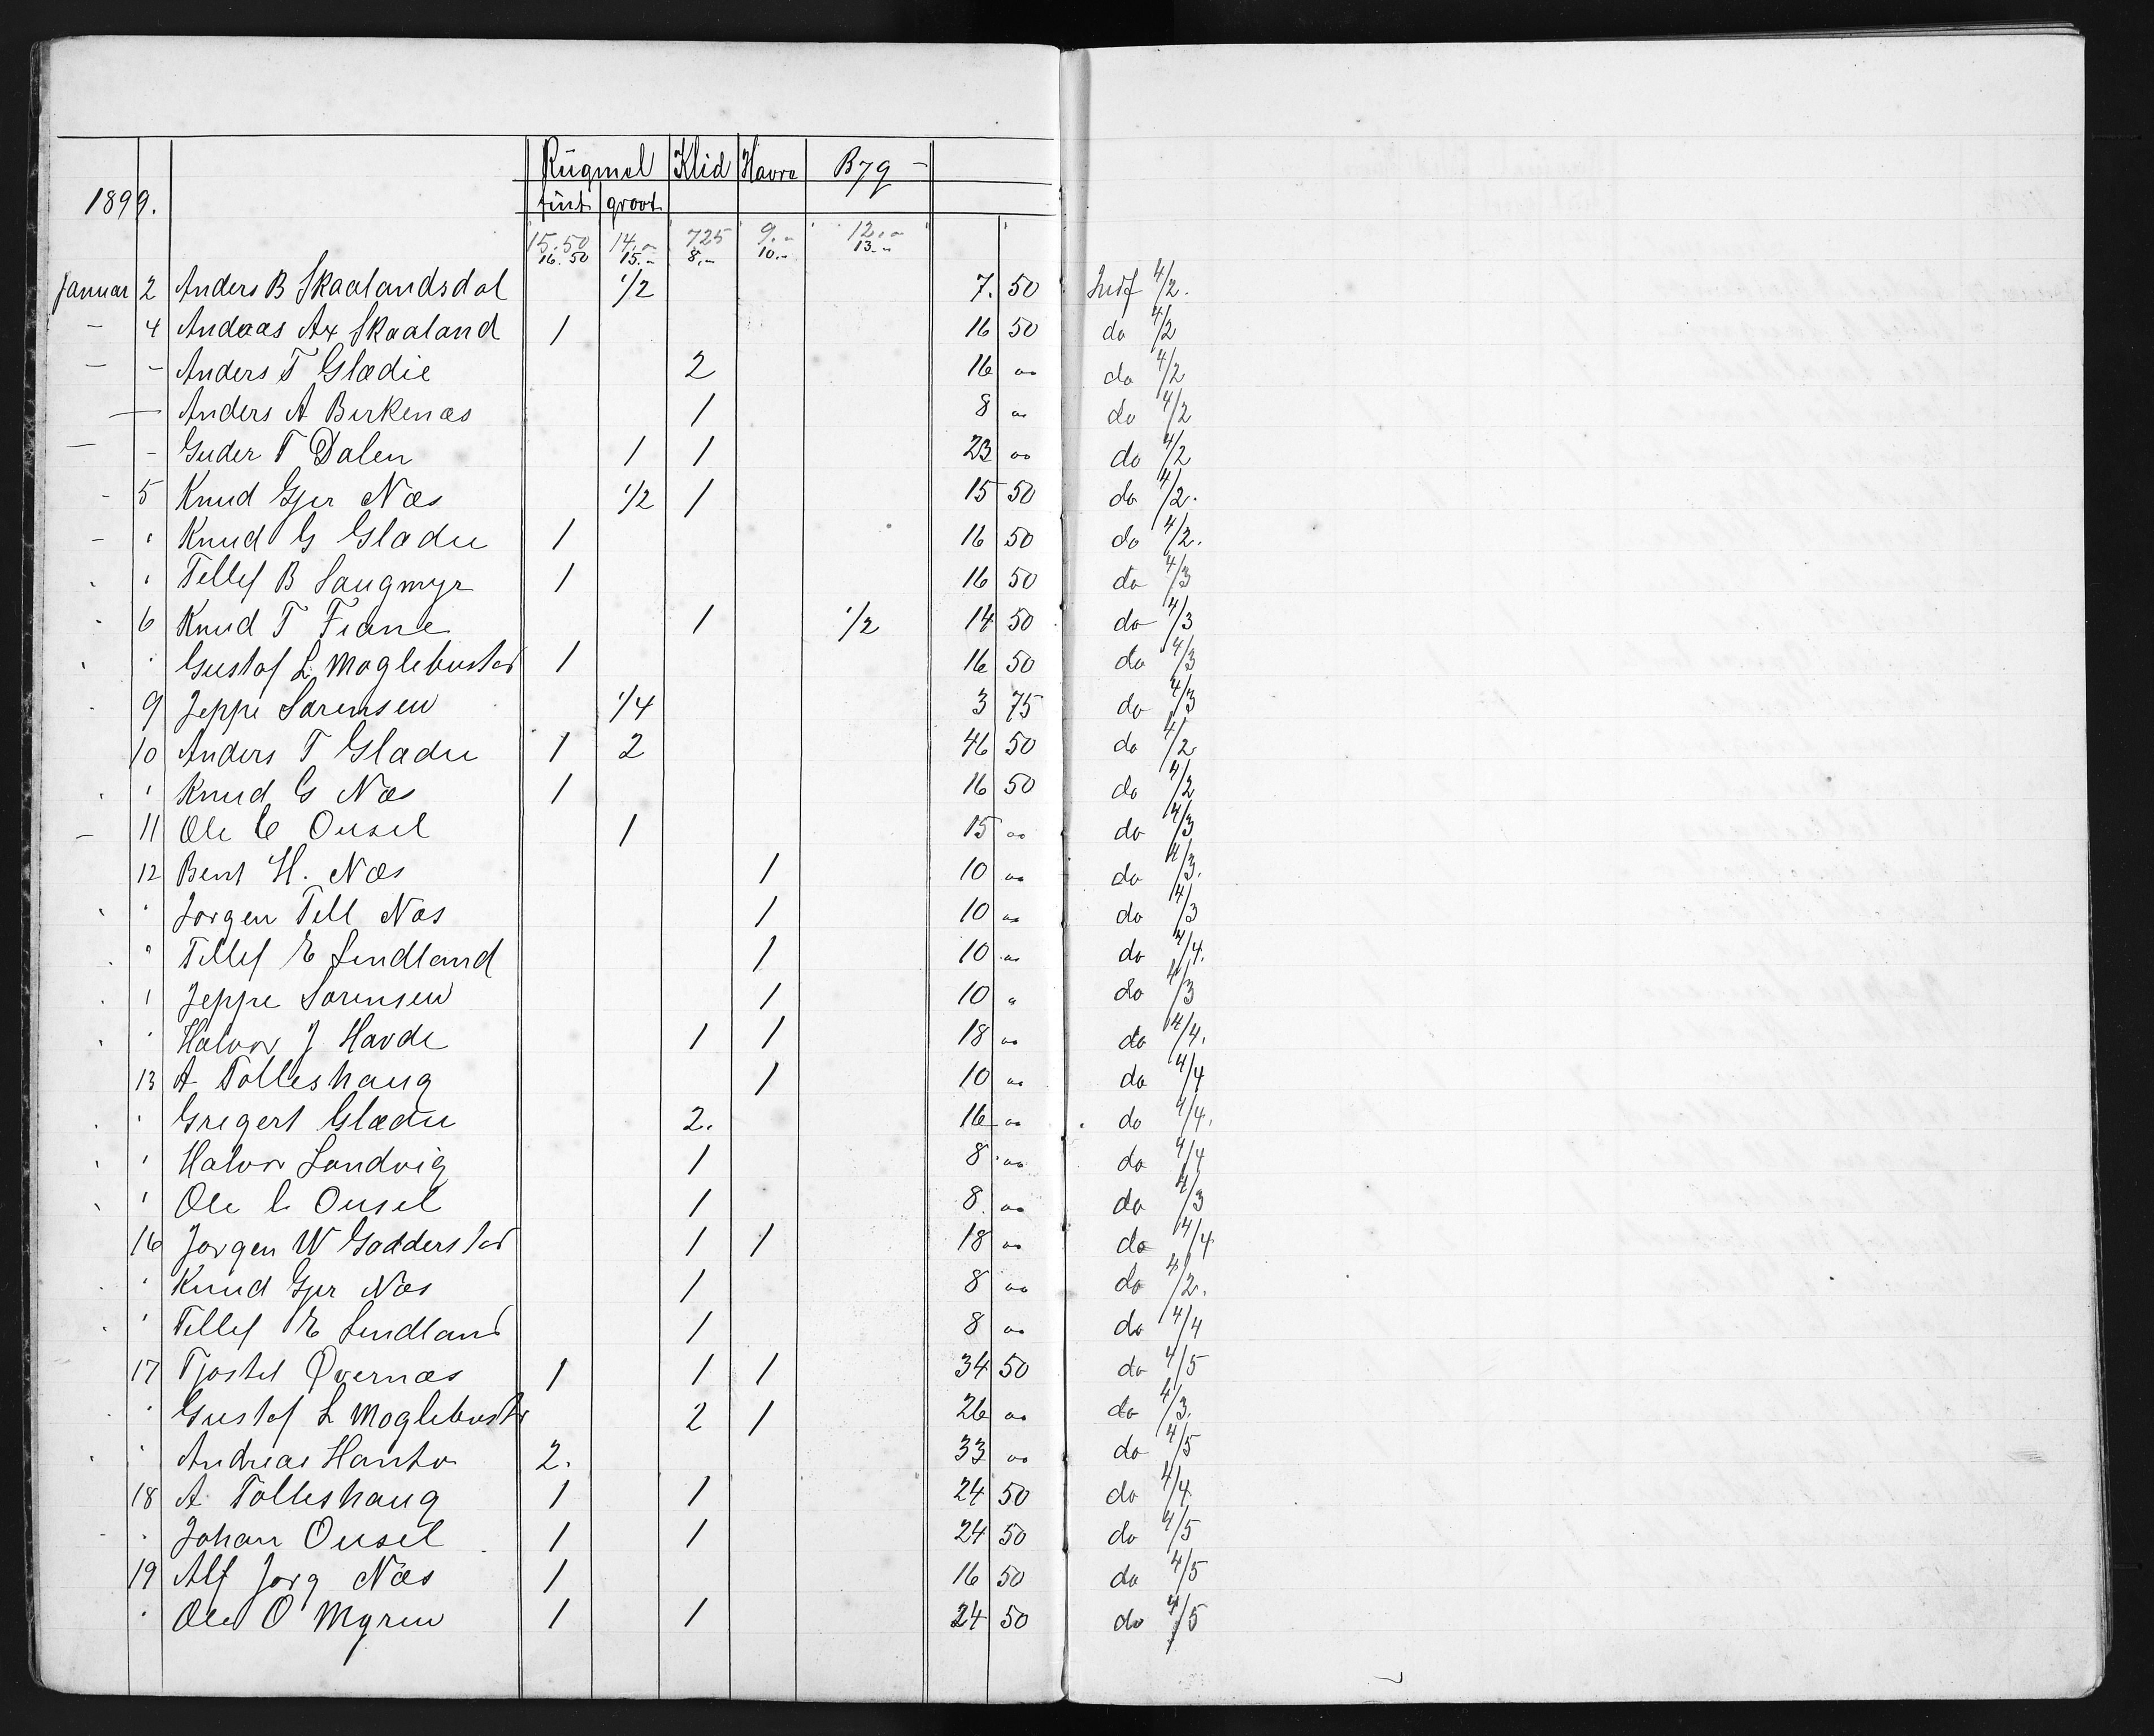 Rügmel Klid Havre Byg -
1899. fint groot
15.50 14.- 725 9.- 12.-
16.50 15.- 8.- 10.- 13.-
Januar 2 Anders B Skaalandsdal 1/2 7. 50 Indf 4/2.
- 4 Andaas Ax Skaaland 1 16 50 do 4/2
- - Anders T Glædie 2 16 " do 4/2
- Anders A Birkenæs 1 8 " do 4/2
- - Guder T Dalen 1 1 23 " do 4/2
- 5 Knud Gjer Næs 1/2 1 15 50 do 4/2.
- " Knud G Glædie 1 16 50 do 4/2.
" " Tellef B Saugmyr 1 16 50 do 4/3
" 6 Knud T Fiane 1 1/2 14 50 do 4/3
" " Gustaf L Moglebustad 1 16 50 do 4/3
" 9 Jeppe Sørensen 1/4 3 75 do 4/3
10 Anders T Glædie 1 2 46 50 do 4/2
" " Knud G Næs 1 16 50 do 4/2
- 11 Ole C Ousel 1 15 " do 4/3
12 Bent H. Næs 1 10 " do 4/3.
" " Jørgen Tell Næs 1 10 " do 4/3
" " Tellef E Lindland 1 10 " do 4/4.
" " Jeppe Sørensen 1 10 " do 4/3
" " Halvor J Havde 1 1 18 " do 4/4.
13 A Tolleshaug 1 10 " do 4/4
" " Gregert Glædie 2. 16 " do 4/4.
" " Halvor Landvig 1 8 " do 4/4
" " Ole C Ousel 1 8 " do 4/3
16 Jørgen W Godderstad 1 1 18 " do 4/4
" " Knud Gjer Næs 1 8 " do 4/2.
" " Tellef E Lindland 1 8 " do 4/4
17 Tjøstel Øvernæs 1 1 1 34 50 do 4/5
" " Gustaf L Moglebustd 2 1 26 " do 4/3.
" " Andreas Hanto 2. 33 " do 4/5
18 A Tolleshaug 1 1 24 50 do 4/4
- " Johan Ousel 1 1 24 50 do 4/5
19 Alf Jørg Næs 1 16 50 do 4/5
" Ole O Myren 1 1 24 50 do 4/5